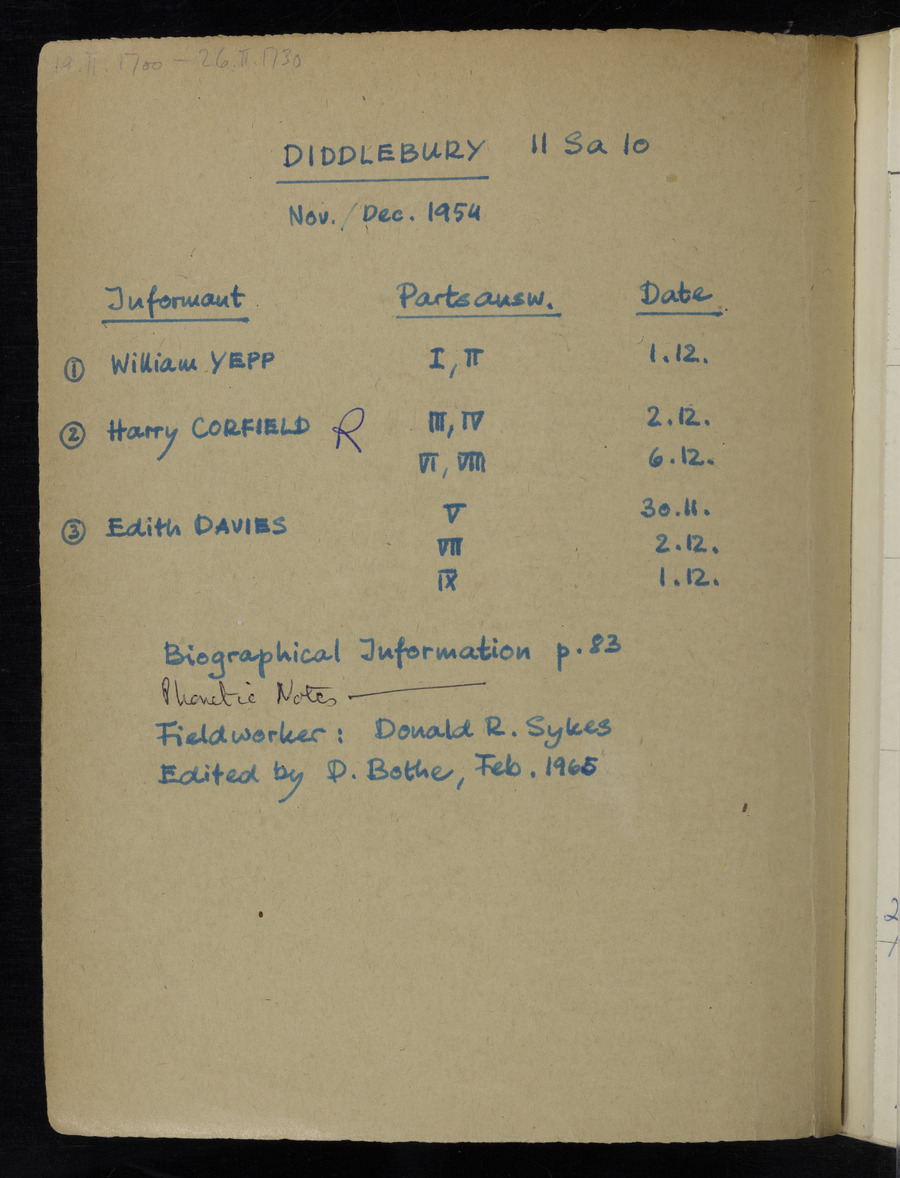 19.II.1700 — 26.II.1730
DIDDLEBURY 11 Sa 10
Nov./Dec. 1954
Informant Parts answ. Date
① William YEPP I, II 1.12.
② Harry CORFIELD R III, IV 2.12.
VI, VIII 6.12.
③ Edith DAVIES V 30.11.
VII 2.12.
IX 1.12.
Biographical Information p. 83
Phonetic Notes —
Fieldworker: Donald R. Sykes
Edited by D. Bothe, Feb. 1965
2